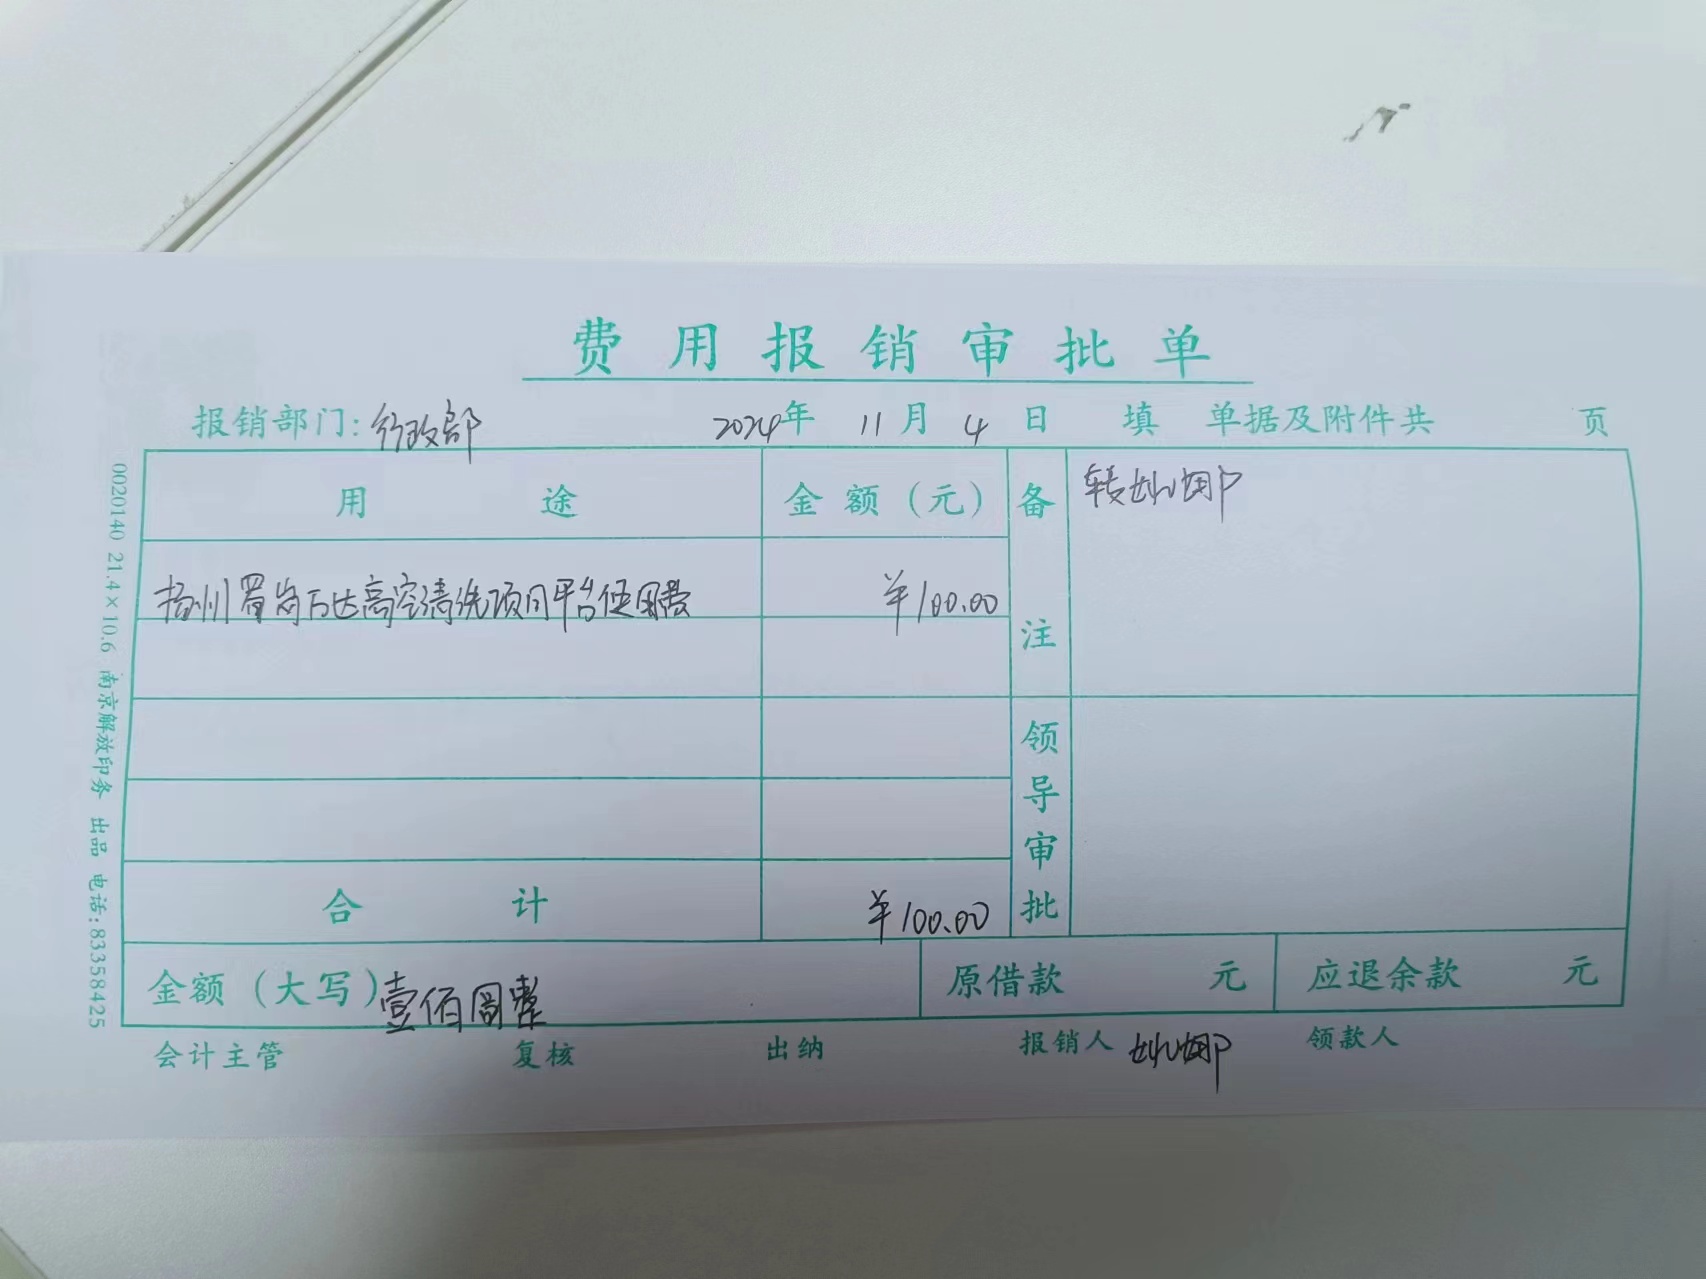 费用报销审批单
报销部门: 行政部 2024年 11月 4日 填 单据及附件共 页
用途 金额(元) 备注 转
扬州蜀岗万达高空清洗项目平台使用费 ¥100.00
领导审批
合计 ¥100.00
金额(大写) 壹佰圆整 原借款 元 应退余款 元
会计主管 复核 出纳 报销人 领款人
0020140 21.4×10.6 南京解放印务 出品 电话:83358425